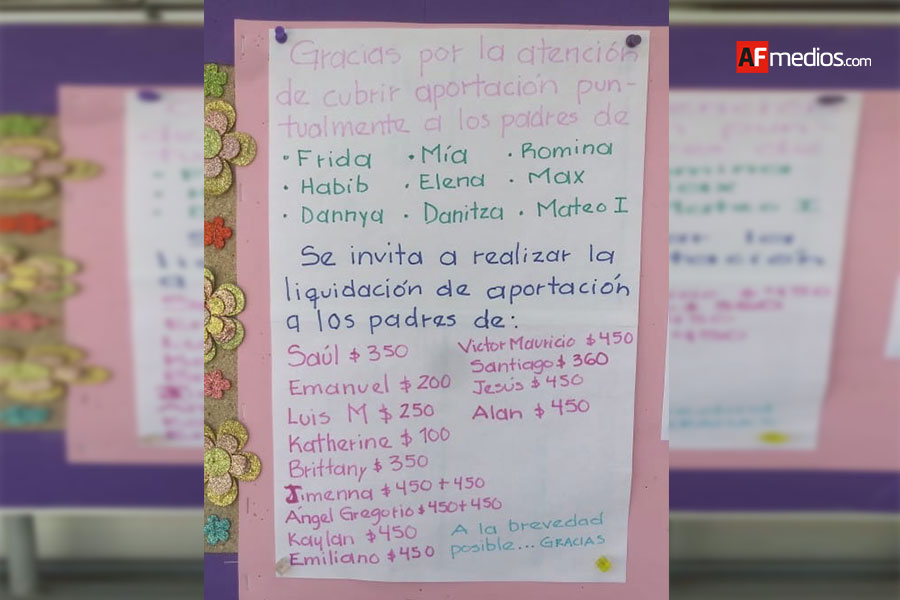 AFmedios.com
Gracias por la atención
de cubrir aportación pun-
tualmente a los padres de
• Frida • Mía • Romina
• Habib • Elena • Max
• Dannya • Danitza • Mateo I
Se invita a realizar la
liquidación de aportación
a los padres de:
Saúl $ 350
Emanuel $ 200
Luis M $ 250
Katherine $ 100
Brittany $ 350
Jimenna $ 450 + 450
Ángel Gregorio $ 450 + 450
Kaylan $ 450
Emiliano $ 450
Victor Mauricio $ 450
Santiago $ 360
Jesús $ 450
Alan $ 450
A la brevedad
posible... GRACIAS